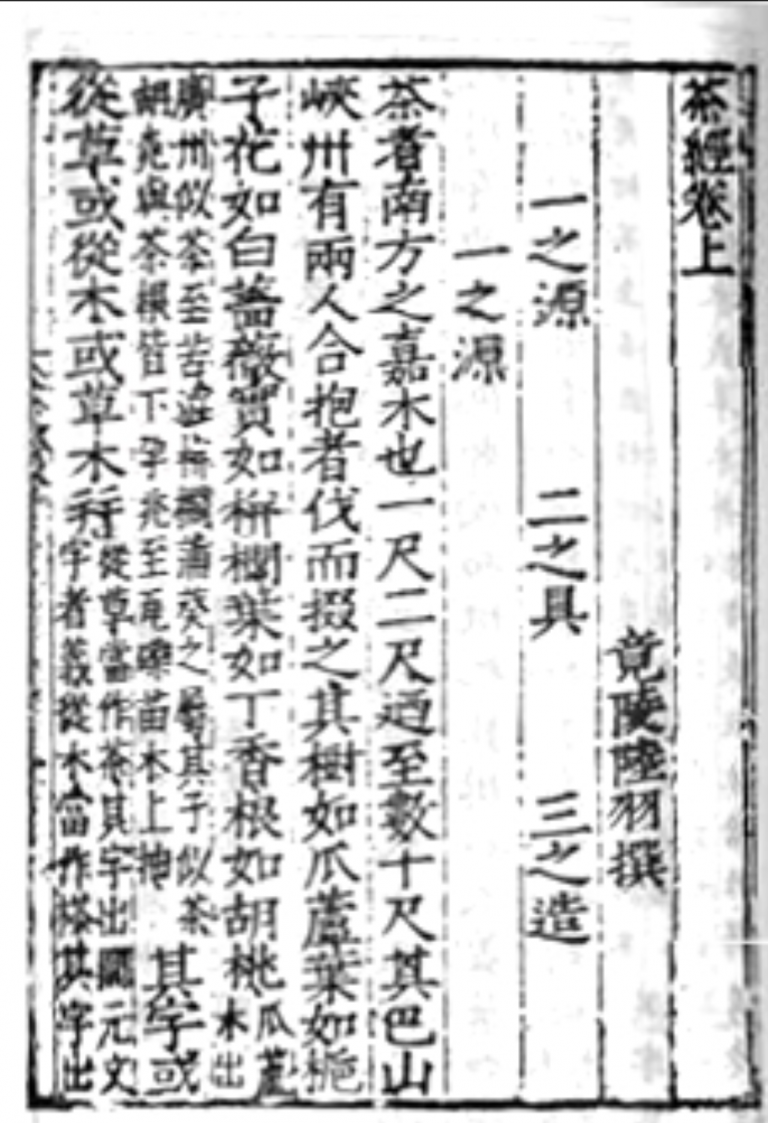 茶經卷上
竟陵陸羽撰
一之源 二之具 三之造
一之源
茶者南方之嘉木也一尺二尺迺至數十尺其巴山
峽州有兩人合抱者伐而掇之其樹如瓜蘆葉如梔
子花如白薔薇實如栟櫚葉如丁香根如胡桃瓜蘆木出
廣州似茶至苦澁栟櫚蒲葵之屬其子似茶胡桃與茶根皆下孕兆至瓦礫苗木上抽其字或
從草或從木或草木并從草當作茶其字出開元文字者義從木當作搽其字出